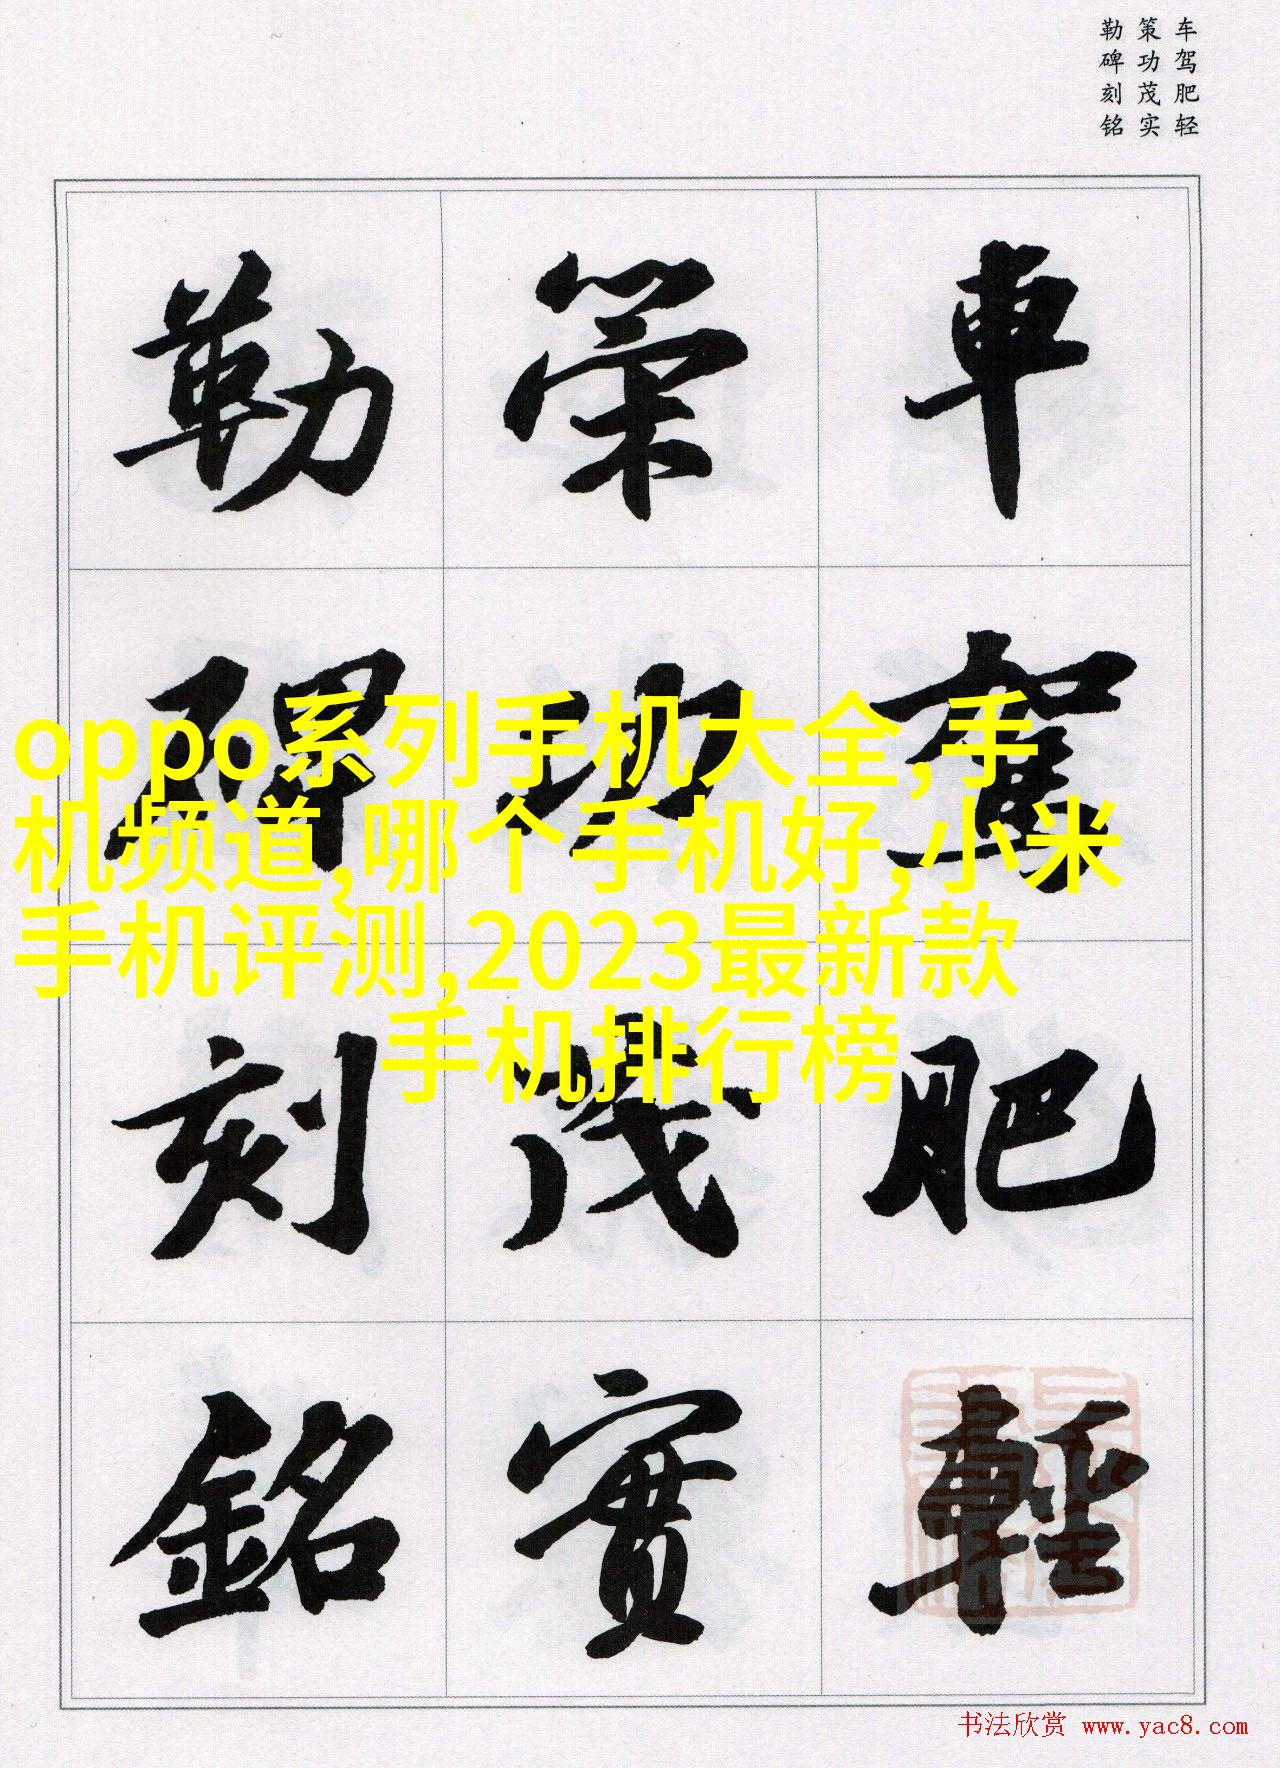 车驾肥轻
策功茂实
勒碑刻铭
車駕肥輕
策功茂實
勒碑刻銘
oppo系列手机大全,手
机频道,哪个手机好,小米
手机评测,2023最新款
手机排行榜
书法欣赏 www.yac8.com